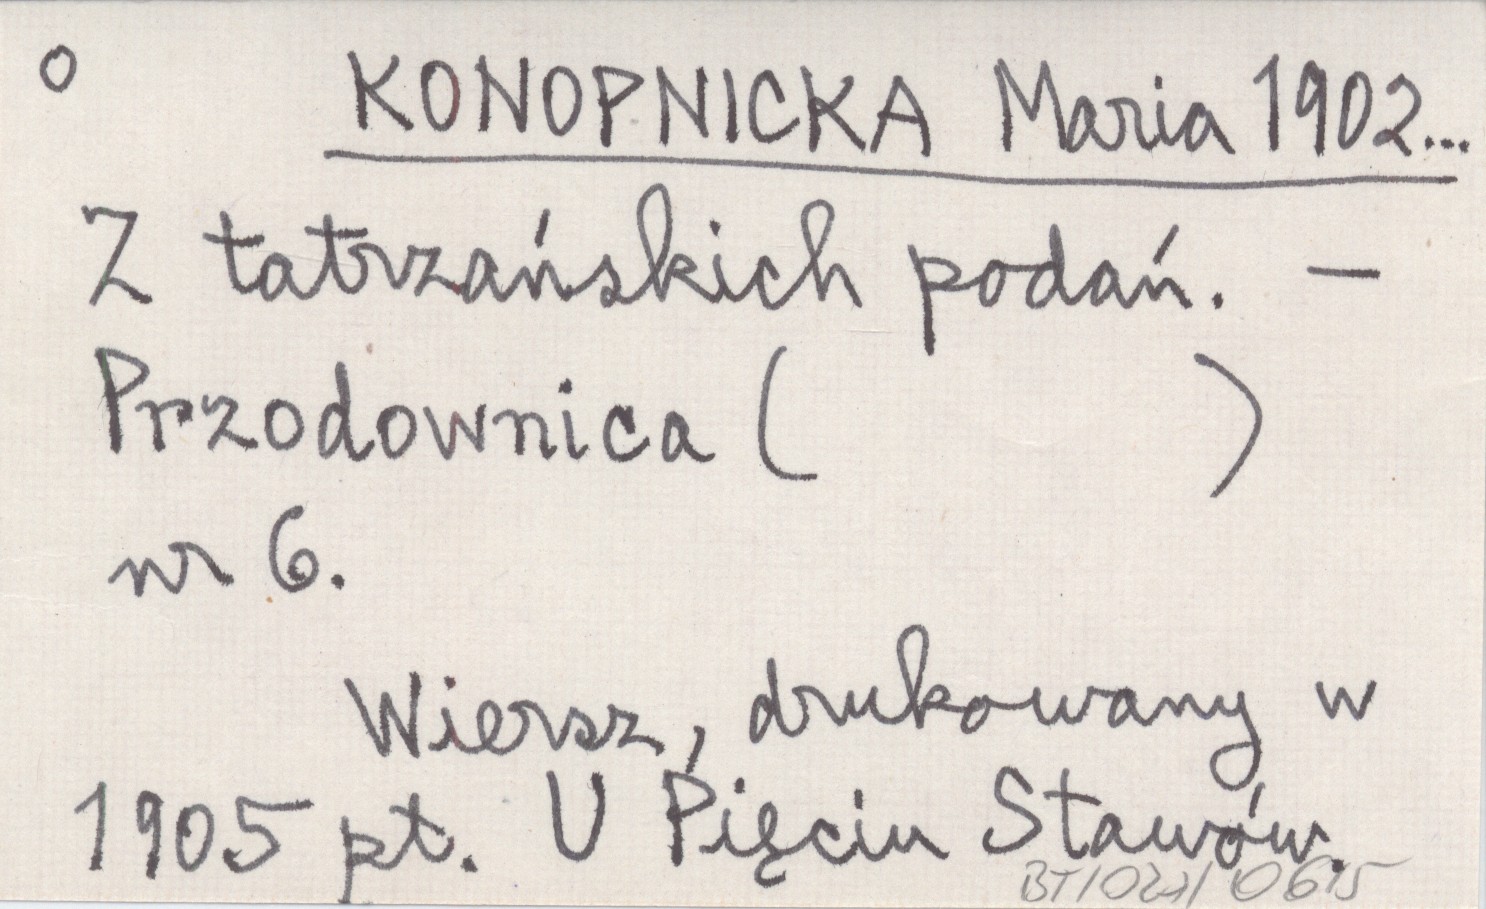 o KONOPNICKA Maria 1902...
Z tatrzańskich podań. —
Przodownica ( )
nr 6.
Wiersz, drukowany w
1905 pt. U Pięciu Stawów.